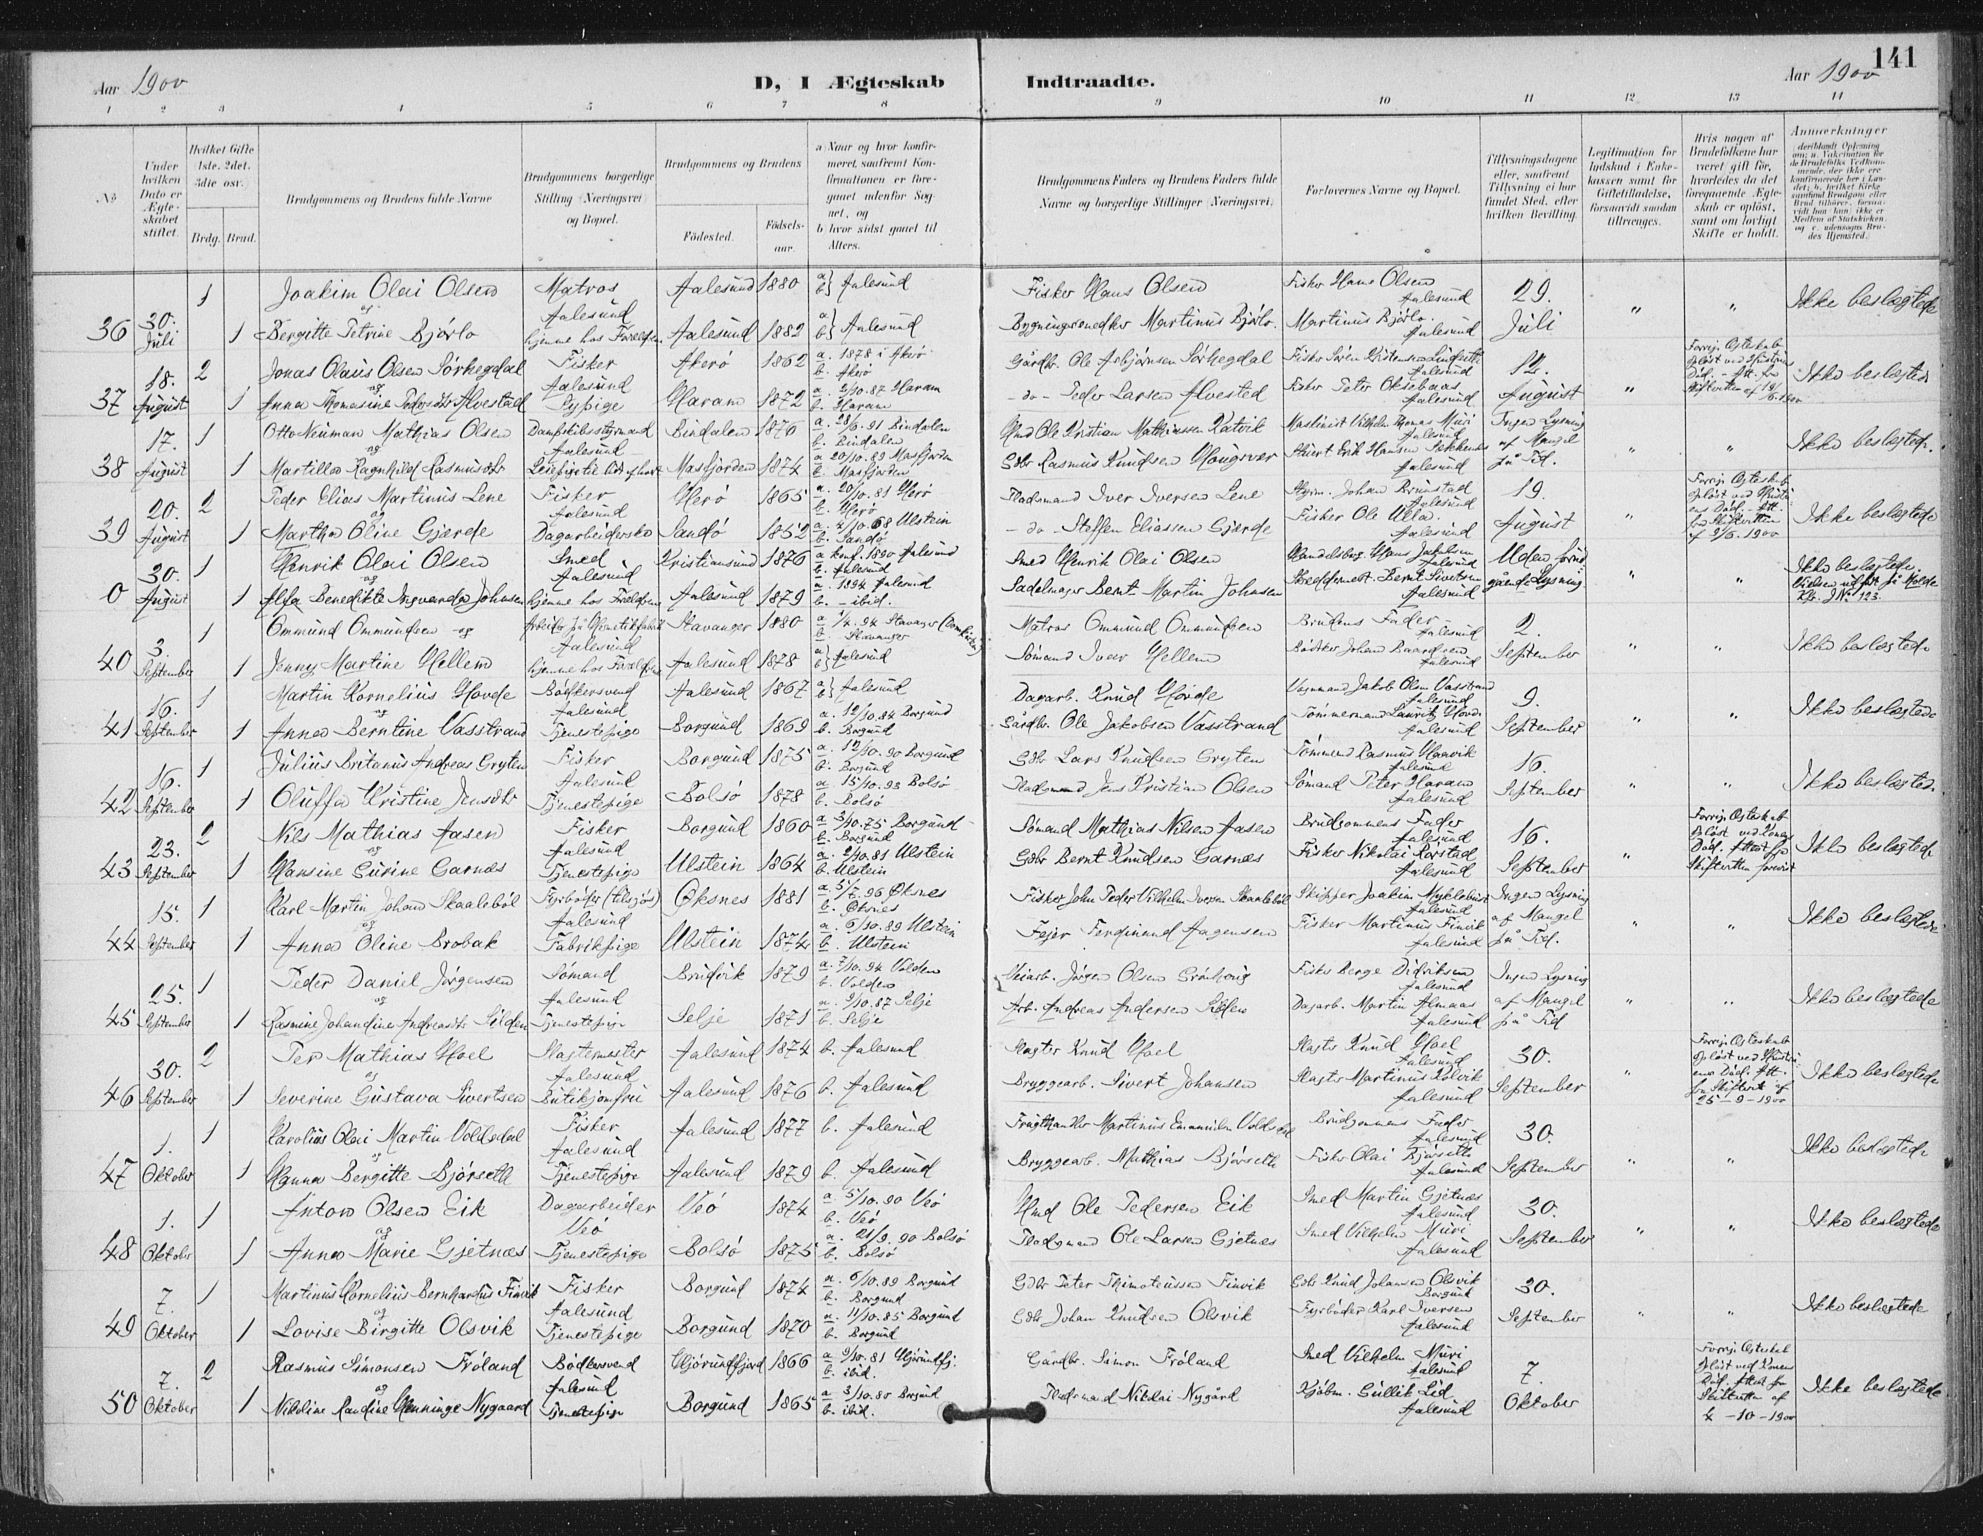 Aar 1900
D, I Ægteskab Indtraadte.
Aar 1900
141
1 2 3 4 5 6 7 8 9 10 11 12 13 14
No
Under hvilken Dato er Ægteskabet stiftet.
Hvilket Gifte 1ste. 2det. 3die osv.
Brdg. Brud.
Brudgommens og Brudens fulde Navne
Brudgommens borgerlige Stilling (Næringsvei) og Bopæl.
Brudgommens og Brudens
Fødested. Fødselsaar.
a Naar og hvor konfirmeret, saafremt Konfirmationen er foregaaet udenfor Sognet, og
b hvor sidst gaaet til Alters.
Brudgommens Faders og Brudens Faders fulde Navne og borgerlige Stillinger (Næringsvei).
Forlovernes Navne og Bopæl.
Tillysningsdagene eller, saafremt Tillysning ei har fundet Sted, efter hvilken Bevilling.
Legitimation for Indskud i Enkekassen samt for Giftetilladelse, forsaavidt saadan tiltrænges.
Hvis nogen af Brudefolkene har været gift før, hvorledes da det foregaaende Ægteskab er opløst, samt om lovligt Skifte er holdt.
Anmærkninger
36 30. Juli 1 Joakim Olai Olsen og Matros Aalesund Aalesund 1880 a b } Aalesund Fisker Hans Olsen Fisker Hans Olsen Aalesund 29. Juli " " Ikke beslægtede
1 Bergitte Petrine Bjørlo hjemme hos Forældrene Aalesund 1882 a b } Aalesund Bygningssnedker Martinus Bjørlo. Martinus Bjørlo. Aalesund
37 18. August 2 Jonas Olaus Olsen Sørhegdal og Fisker Aalesund Akerø 1862 a. 1878 i Akerø b. Akerø Gårdbr. Ole Asbjørnsen Sørhegdal Aalesund 12. August " Forrige Ægteskab opløst ved Hustruens Død. Ikke beslægtede
1 Anna Thomasine Pedersdtr Alvestad Sypige Haram 1872 a. 2/10.87 Haram b. Haram -do- Peder Larsen Alvestad Fisker Peter Oksebaas Aalesund
38 17. August 1 Otto Neuman Mathias Olsen og Dampskibsstyrmand Aalesund Bindalen 1876 a. 28/6.91 Bindalen b. Bindalen Gmd Ole Kristian Mathiassen Kalvik Maskinist Vilhelm Thomas Muri Aalesund Ingen Lysning af Mangel på Tid. " " Ikke beslægtede.
1 Martilla Ragnhild Rasmusdtr Masfjorden 1874 a 20/10.89 Masfjorden b. Masfjorden Gdbr Rasmus Knudsen Hougsvær Aalesund
39 20. August 2 Peder Elias Martinus Lene og Fisker Aalesund Herø 1865 a. 20/10.81 Herø b. Herø Pladsmand Iver Iversen Lene Styrm. Johan Brunstad Aalesund 19. August " Forrige Ægteskab opløst ved Hustruens Død. 9/6.1900 Ikke beslægtede
1 Martha Oline Gjærde Dagarbeiderske Sandø 1852 a. 4/10 68 Ulstein b. Sandø -do- Steffen Eliassen Gjærde Fisker Ole Ulla. Aalesund
0 30. August 1 Henrik Olai Olsen og Smed Aalesund Kristiansund 1876 a konf. 1890 Aalesund b. Aalesund Smed Henrik Olai Olsen Handelsborg. Hans Jakobsen Aalesund Uden forudgående Lysning " " Ikke beslægtede. Vielsen udført på Molde Kfr. J No 123.
1 Alfa Benedikte Ingvarda Johnsen hjemme hos Forældrene Aalesund 1879 a. 1894 Aalesund b. -ibid. Sadelmager Bernt Martin Johnsen Skreddermest. Bernt Sivertsen Aalesund
40 3. September 1 Ommund Ommundsen og Aalesund Stavanger 1880 a 1/4.94 Stavanger (Domkirken) b. Stavanger Matros Ommund Ommundsen Brudens Fader Aalesund 2. September " " Ikke beslægtede
1 Jenny Martine Hellem hjemme hos Forældrene Aalesund 1878 a b } Aalesund Sømand Iver Hellem Bødker Johan Baardsen Aalesund
41 16. September 1 Martin Kornelius Hovde og Bødkersvend Aalesund Aalesund 1867 a b } Aalesund Dagarb. Knud Hovde Vognmand Jakob Olsen Vasstrand Aalesund 9. September " " Ikke beslægtede
1 Anna Berntine Vasstrand Tjenestepige Borgund 1869 a. 12/10.84 Borgund b. Borgund Gårdbr. Ole Jakobsen Vasstrand Tømmermand Lauritz Hovde Aalesund
42 16. September 1 Julius Britanus Andreas Gryten Fisker Aalesund Borgund 1875 a. 12/10.90 Borgund b. Borgund Gdbr Lars Knudsen Gryten Tømmermd Rasmus Haavik Aalesund 16. September " " Ikke beslægtede.
1 Oluffa Kristine Jensdtr Tjenestepige Bolsø 1878 a 15/10.93 Bolsø b. Bolsø Pladsmand Jens Kristian Olsen Sømand Peter Haram Aalesund
43 23. September 2 Nils Mathias Aasen og Fisker Aalesund Borgund 1860 a. 3/10.75 Borgund b. Borgund Sømand Mathias Nilsen Aasen Brudgommens Fader Aalesund 16. September " Forrige Ægteskab opløst ved Konens Død. Ikke beslægtede
1 Hansine Gurine Garnæs Tjenestepige Ulstein 1864 a. 2/10.81 Ulstein b. Ulstein Gdbr Bernt Knudsen Garnæs Fisker Nikolai Rørstad Aalesund
44 15. September 1 Karl Martin Johan Skaalebøl og Fyrbøder (tilsjøs) Aalesund Øksnes 1881 a. 5/7 96 Øksnes b. Øksnes Fisker John Peder Vilhelm Iversen Skaalebøl Skipper Joakim Myklebust Aalesund Ingen Lysning af Mangel på Tid. " " Ikke beslægtede
1 Anna Oline Brobak Fabrikpige Ulstein 1874 a. 6/10.89 Ulstein b. Ulstein Fejer Ferdinand Aagensen Fisker Martinus Finvik Aalesund
45 25. September 1 Peder Daniel Jørgensen og Sømand Aalesund Bruvik 1879 a. 7/10.94 Volden b. Volden Veiarb. Jørgen Olsen Fisker Berge Didriksen Aalesund Ingen Lysning af Mangel på Tid " " Ikke beslægtede
1 Rasmine Johandine Andreasdtr Silden Tjenestepige Selje 1871 a. 9/10.87 Selje b. Selje Arb. Andreas Andersen Silden Dagarb. Martin Almaas Aalesund
46 30. September 2 Per Mathias Hoel og Slagtermester Aalesund Aalesund 1874 b. Aalesund Slagter Knud Hoel Slagter Knud Hoel Aalesund 30. September " Forrige Ægteskab opløst ved Hustruens Død. 25-9-1900 Ikke beslægtede
1 Severine Gustava Sivertsen Butikjomfru Aalesund 1876 b. Aalesund Bryggearb. Sivert Johansen Slagter Martinus Kolvik Aalesund
47 1. Oktober 1 Karolius Olai Martin Voldsdal og Fisker Aalesund Aalesund 1877 b. Aalesund Frugthandler Martinus Emanuelsen Voldsdal Brudgommens Fader Aalesund 30. September " " Ikke beslægtede
1 Hanna Bergitte Bjørseth Tjenestepige Aalesund 1879 b. Aalesund Bryggearb. Mathias Bjørseth Fisker Olai Bjørseth Aalesund
48 1. Oktober 1 Anton Olsen Eik og Dagarbeider Veø Veø 1874 a. 5/10.90 Veø b. Veø Gmd Ole Pedersen Eik Smed Martin Gjetnæs Aalesund 30. September " " Ikke beslægtede
1 Anna Marie Gjetnæs Tjenestepige Bolsø 1875 a. 21/9.90 Bolsø b. Bolsø Pladsmand Ole Larsen Gjetnæs Smed Vilhelm Muri Aalesund
49 7. Oktober 1 Martinus Kornelius Bernhardus Finvik og Fisker Aalesund Borgund 1874 a. 6/10.89 Borgund b. Borgund Gdbr Peter Thimoteussen Finvik Gdb Knud Johansen Olsvik Borgund 30. September " " Ikke beslægtede
1 Lovise Birgitte Olsvik Tjenestepige Borgund 1870 a. 11/10.85 Borgund b. Borgund Gdbr Johan Knudsen Olsvik Fyrbøder Karl Iversen Aalesund
50 7. Oktober 2 Rasmus Simonsen Frøland og Bødkersvend Aalesund Hjørundfjord 1866 a 9/10.81 Hjørundfj. b. ibid. Gårdbr. Simon Frøland Smed Vilhelm Muri Aalesund 7. Oktober Forrige Ægteskab opløst ved Konens Død. 4-10-1900 Ikke beslægtede
1 Nikoline Randine Henninge Nygaard Tjenestepige Borgund 1865 a 3/10.80 Borgund b. ibid. Pladsmand Nikolai Nygård Kjøbm. Gullik Lid. Aalesund